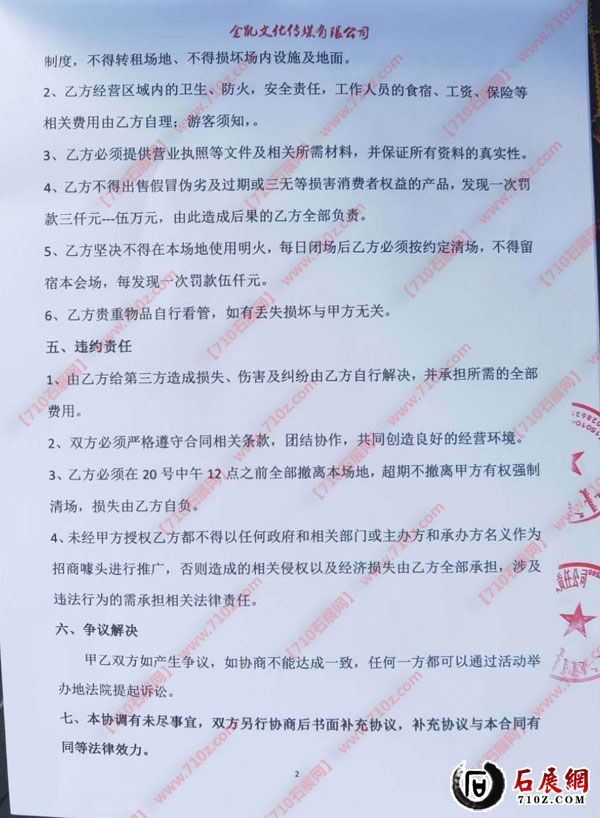 金凯文化传媒有限公司
制度，不得转租场地、不得损坏场内设施及地面。
2、乙方经营区域内的卫生、防火，安全责任，工作人员的食宿、工资、保险等
相关费用由乙方自理；游客须知，。
3、乙方必须提供营业执照等文件及相关所需材料，并保证所有资料的真实性。
4、乙方不得出售假冒伪劣及过期或三无等损害消费者权益的产品，发现一次罚
款三仟元---伍万元，由此造成后果的乙方全部负责。
5、乙方坚决不得在本场地使用明火，每日闭场后乙方必须按约定清场，不得留
宿本会场，每发现一次罚款伍仟元。
6、乙方贵重物品自行看管，如有丢失损坏与甲方无关。
五、违约责任
1、由乙方给第三方造成损失、伤害及纠纷由乙方自行解决，并承担所需的全部
费用。
2、双方必须严格遵守合同相关条款，团结协作，共同创造良好的经营环境。
3、乙方必须在 20 号中午 12 点之前全部撤离本场地，超期不撤离甲方有权强制
清场，损失由乙方自负。
4、未经甲方授权乙方都不得以任何政府和相关部门或主办方和承办方名义作为
招商噱头进行推广，否则造成的相关侵权以及经济损失由乙方全部承担，涉及
违法行为的需承担相关法律责任。
六、争议解决
甲乙双方如产生争议，如协商不能达成一致，任何一方都可以通过活动举
办地法院提起诉讼。
七、本协调有未尽事宜，双方另行协商后书面补充协议，补充协议与本合同有
同等法律效力。
2
责任公司
【710石展网】 www.710z.com
石展網
710Z.COM